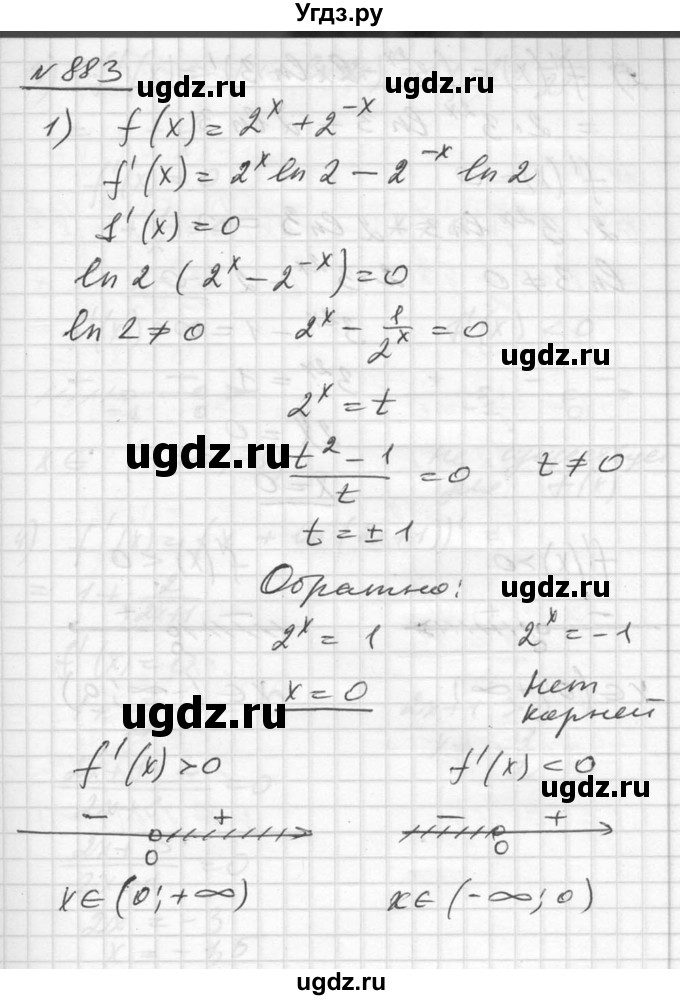 Угдз.ру
№ 883
ugdz.ru
1) f(x) = 2^x + 2^-x
f'(x) = 2^x ln 2 - 2^-x ln 2
f'(x) = 0
ln 2 (2^x - 2^-x) = 0
ln 2 ≠ 0 2^x - 1/2^x = 0
ugdz.ru
2^x = t
ugdz.ru
(t^2 - 1)/t = 0 t ≠ 0
t = ± 1
Обратно:
ugdz.ru
2^x = 1 2^x = -1
x = 0 Нет корней
ugdz.ru
f'(x) > 0 f'(x) < 0
ugdz.ru
- + - +
0 0
x ∈ (0; +∞) x ∈ (-∞; 0)
ugdz.ru